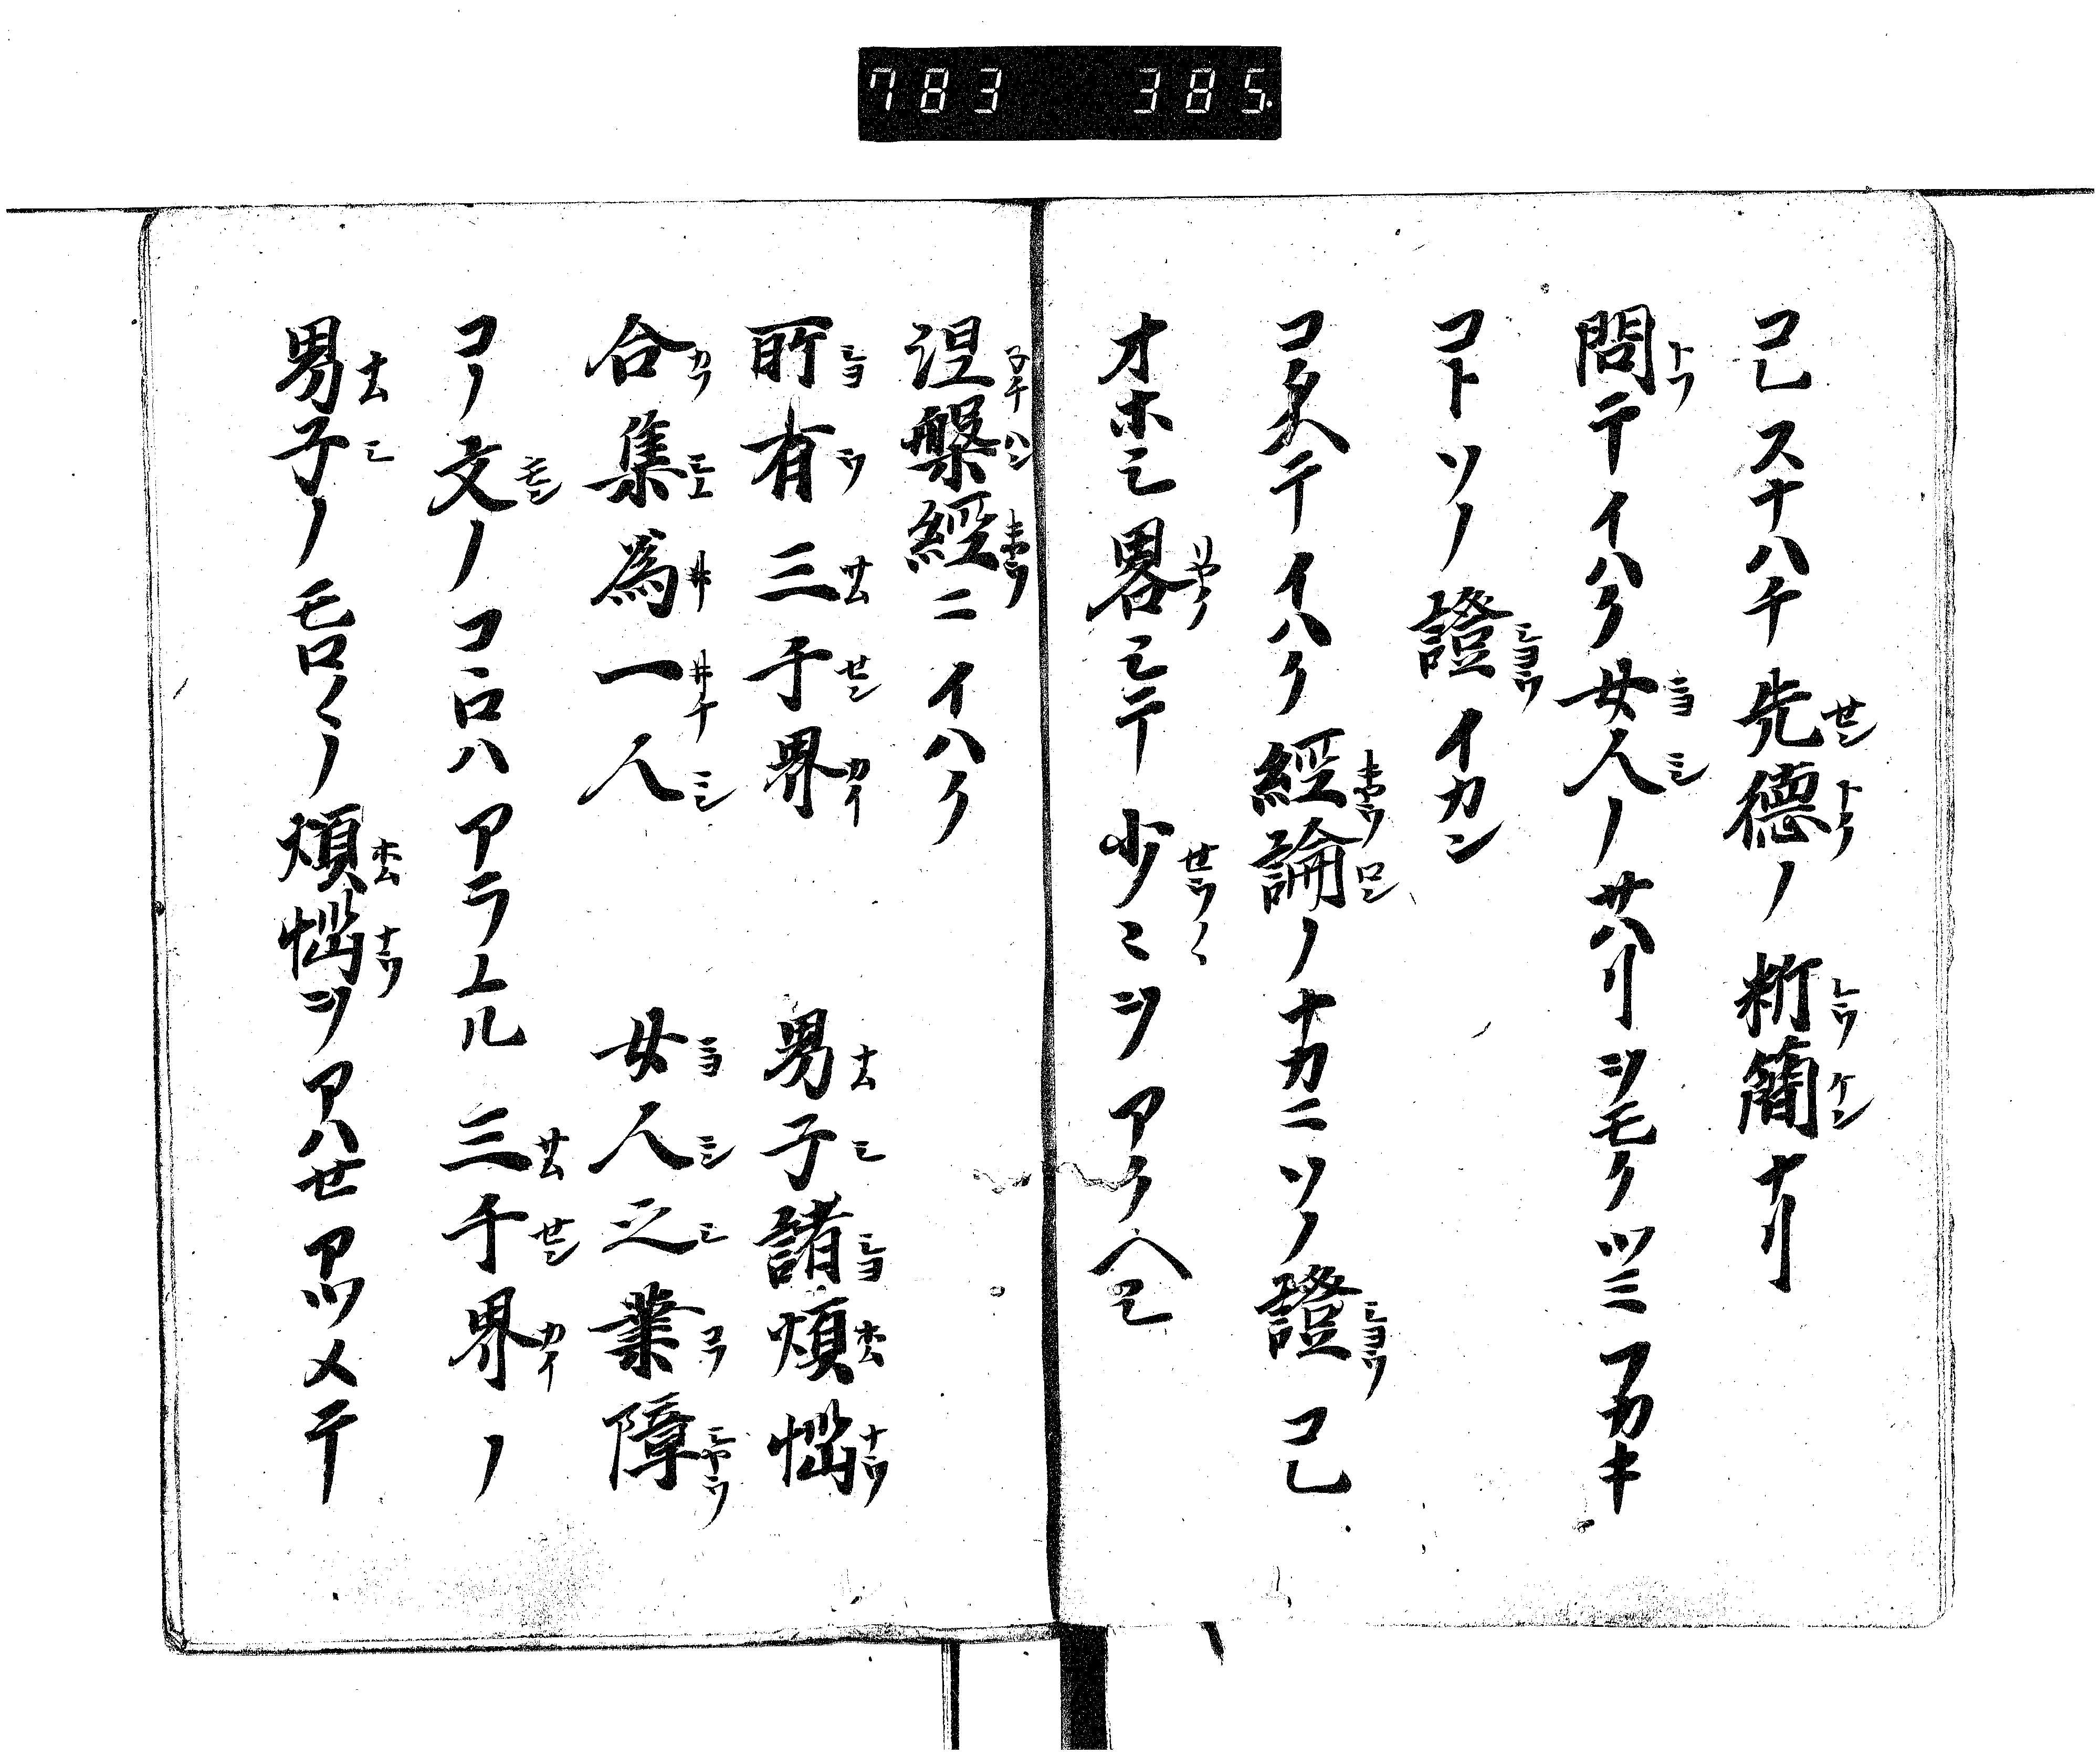 783 385
コレスナハチ先德ノ䉼簡ナリ
問テイハク女人ノサハリヲモクツミフカキ
コトソノ證イカン
コタヘテイハク經論ノナカニソノ證コレ
オホシ畧シテ少〻ヲアクヘシ
涅槃經ニイハク
所有三千界 男子諸煩惱
合集爲一人 女人之業障
コノ文ノコヽロハアラユル三千界ノ
男子ノモロ〱ノ煩惱ヲアハセアツメテ